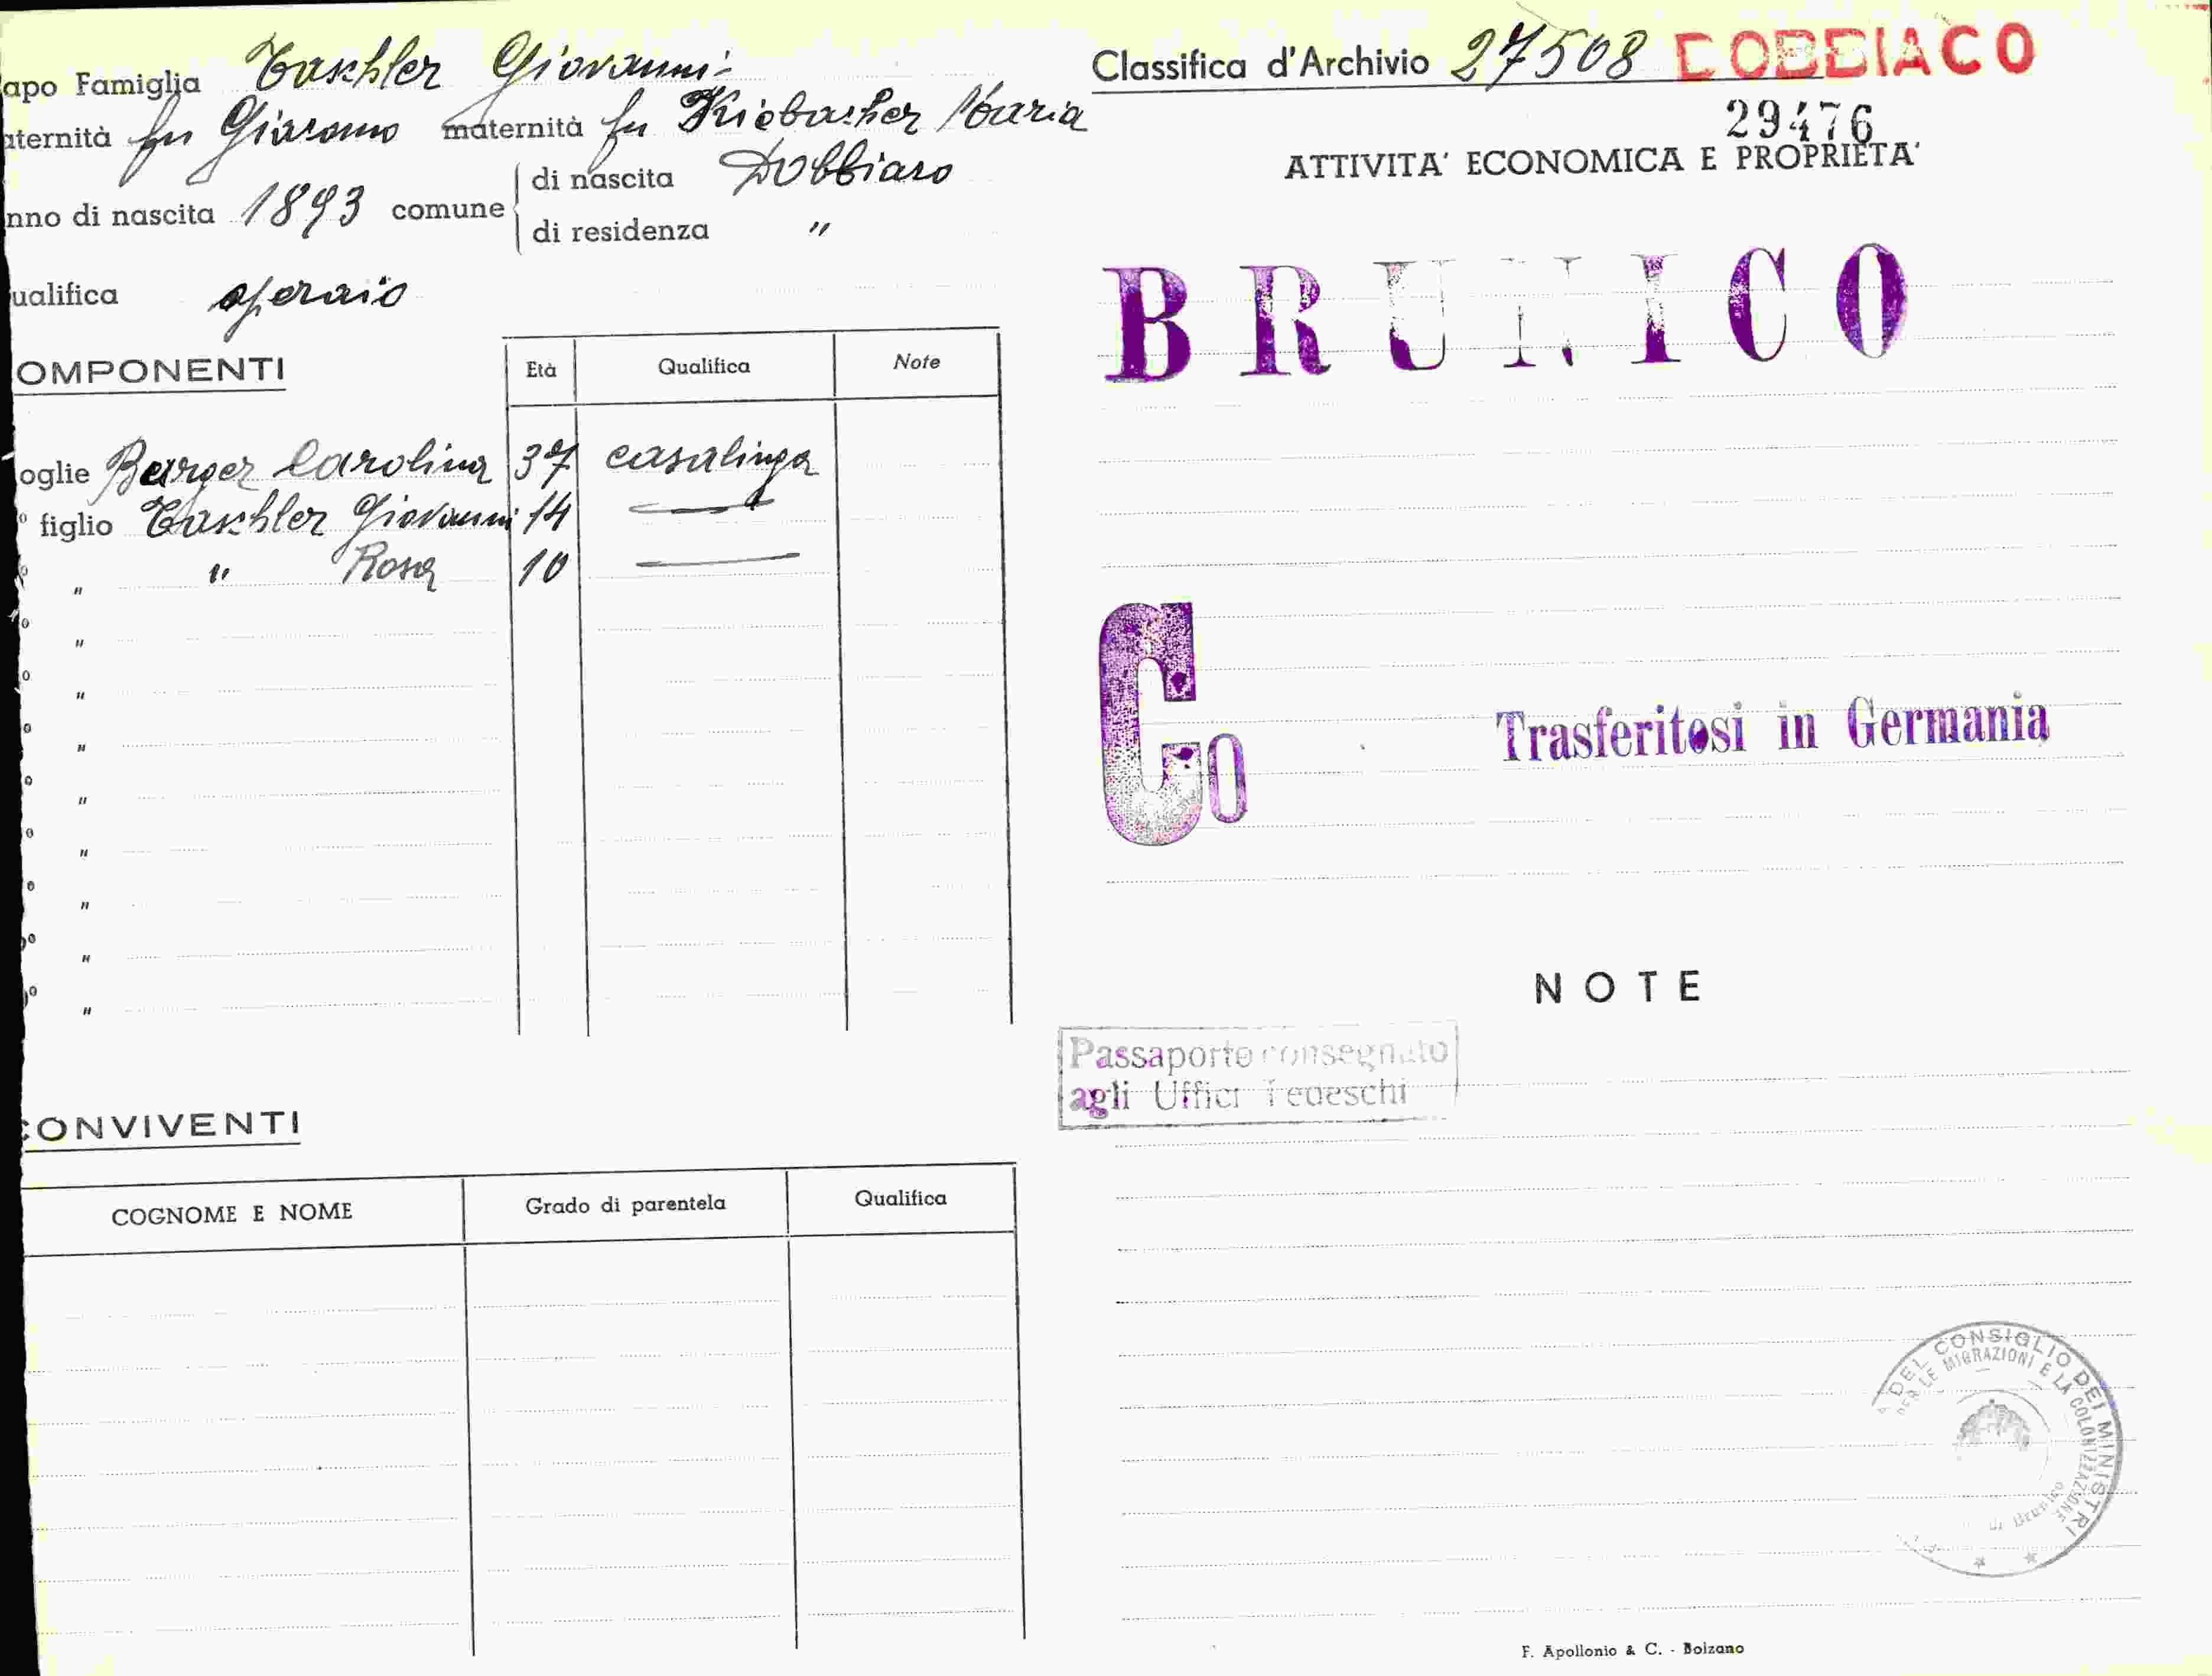 apo Famiglia Taschler Giovanni
aternità fu Giacomo maternità fu Kiebacher Maria
nno di nascita 1893 comune di nascita Dobbiaco
di residenza "
ualifica operaio
OMPONENTI
Età Qualifica Note
oglie Burger Carolina 37 casalinga
° figlio Taschler Giovanni 14 —
° " " Rosa 10 —
° "
° "
° "
° "
° "
° "
° "
° "
CONVIVENTI
COGNOME E NOME Grado di parentela Qualifica
Classifica d'Archivio 27508 DOBBIACO
29476
ATTIVITA' ECONOMICA E PROPRIETA'
BRUNICO
Go
Trasferitosi in Germania
NOTE
Passaporto consegnato
agli Uffici Tedeschi
DEL CONSIGLIO DEI MINISTRI
PER LE MIGRAZIONI E LA COLONIZZAZIONE
di Brunico
F. Apollonio & C. - Bolzano